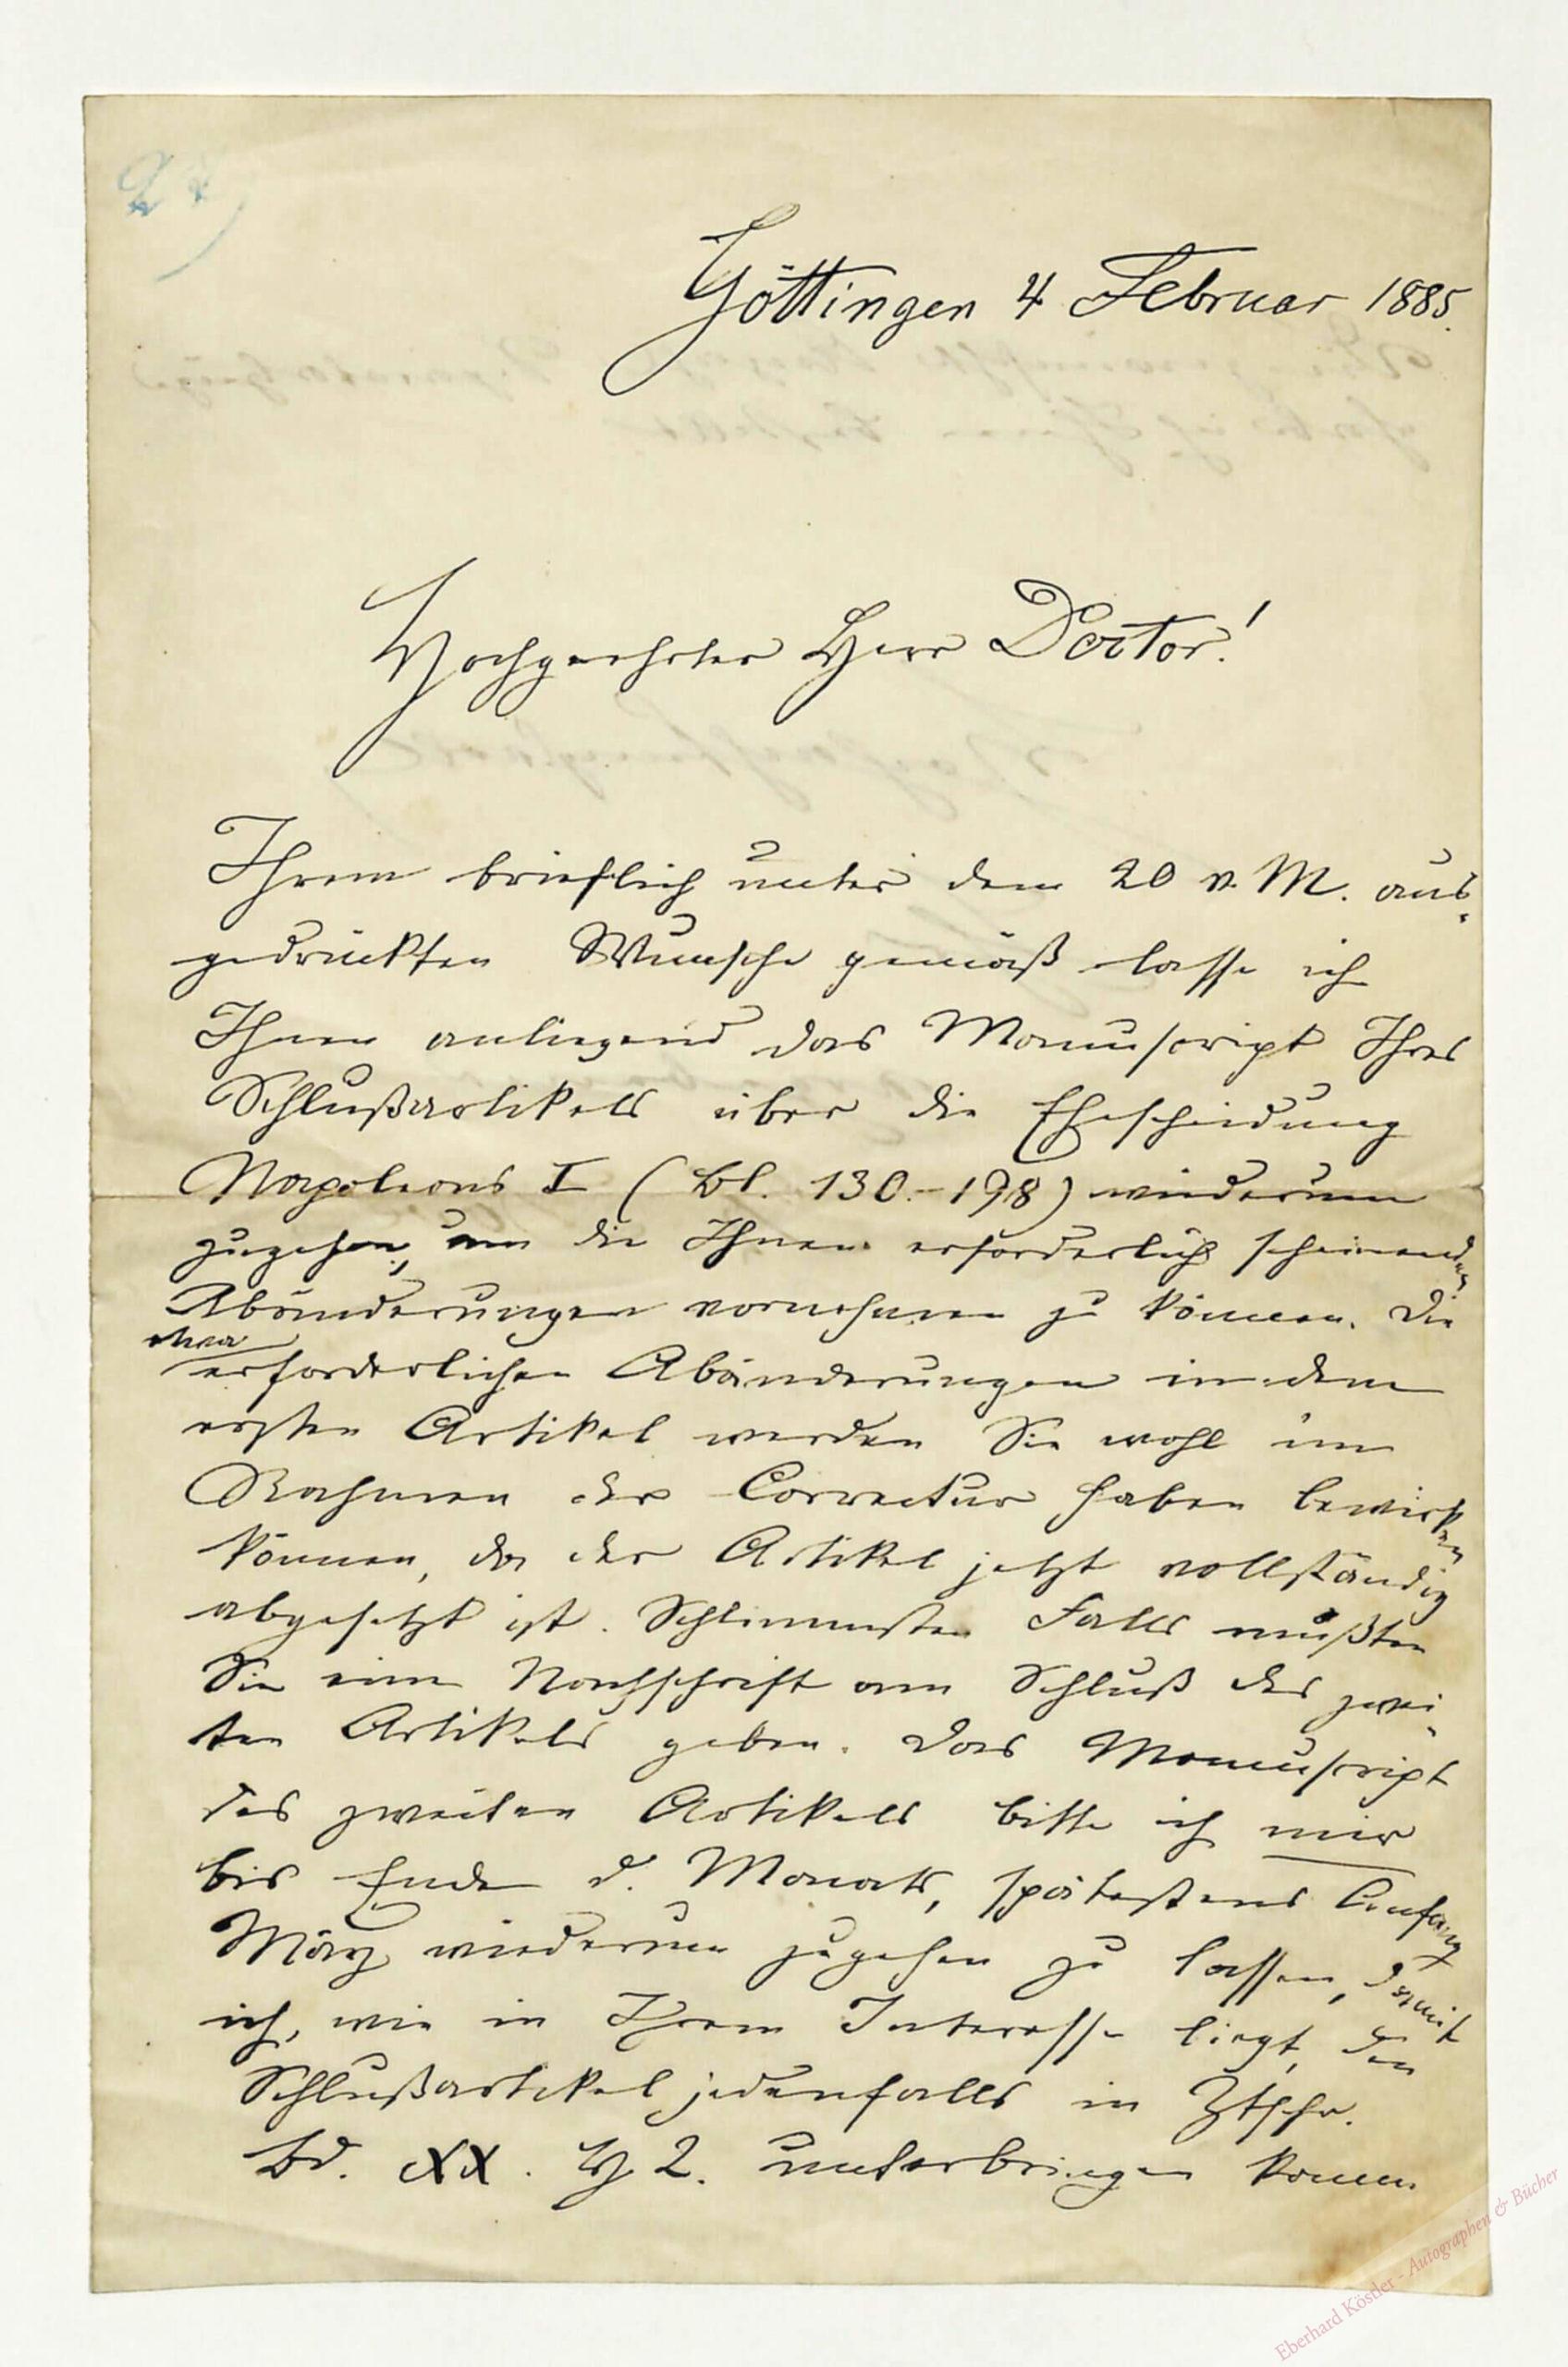 Göttingen 4 Februar 1885.
Hochgeehrter Herr Doctor!
Ihrem brieflich unter dem 20 v. M. aus-
gedrückten Wunsche gemäß lasse ich
Ihnen anliegend das Manuscript Ihres
Schlußartikels über die Ehescheidung
Napoleons I (Bl. 130.-198) wiederum
zugehen, um die Ihnen erforderlich scheinenden
Abänderungen vornehmen zu können. Die
etwa
erforderlichen Abänderungen in dem
ersten Artikel werden Sie wohl im
Rahmen der Correctur haben bewirken
können, da der Artikel jetzt vollständig
abgesetzt ist. Schlimmsten Falls müßten
Sie eine Nachschrift am Schluß des zwei-
ten Artikels geben. Das Manuscript
des zweiten Artikels bitte ich mir
bis Ende d. Monats, spätestens Anfang
März wiederum zugehen zu lassen, damit
ich, wie in Ihrem Interesse liegt, den
Schlußartikel jedenfalls in Ztschr.
Bd. XX. H 2. unterbringen kann.
Eberhard Köstler - Autographen & Bücher